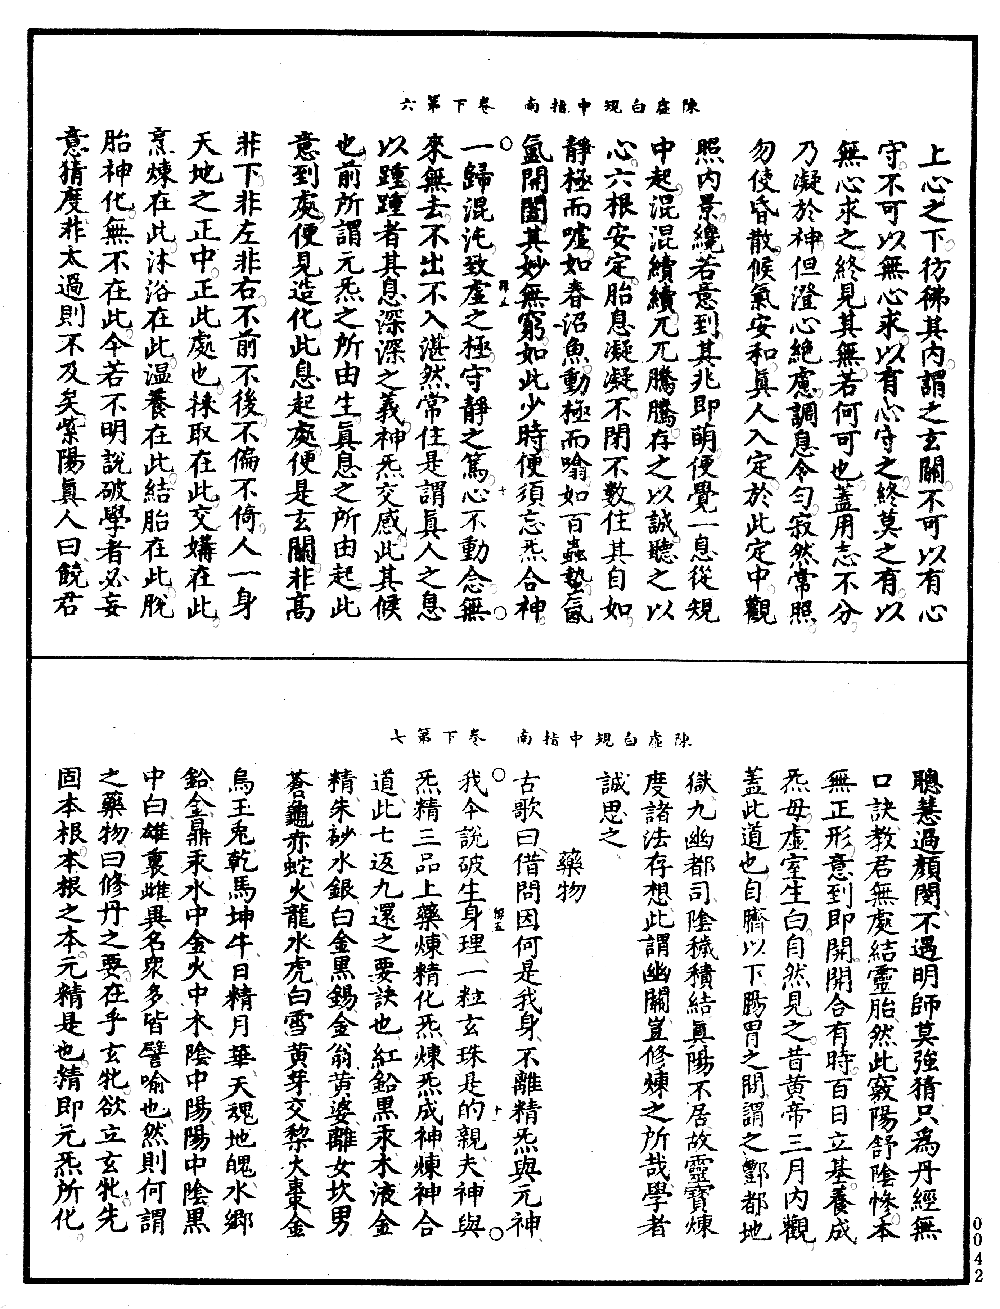 陳虛白規中指南　卷下第六
上心之下彷彿其內謂之玄關不可以有心
守不可以無心求以有心守之終莫之有以
無心求之終見其無若何可也蓋用志不分
乃凝於神但澄心絕慮調息令勻寂然常照
勿使昏散候氣安和眞人入定於此定中觀
照內景纔若意到其兆即萌便覺一息從規
中起混混續續兀兀騰騰存之以誠聽之以
心六根安定胎息凝凝不閉不數任其自如
靜極而噓如春沼魚動極而噏如百蟲蟄氤
氳開闔其妙無窮如此少時便須忘炁合神
一歸混沌致虛之極守靜之篤心不動念無
來無去不出不入湛然常住是謂眞人之息
以踵踵者其息深深之義神炁交感此其候
也前所謂元炁之所由生眞息之所由起此
意到處便見造化此息起處便是玄關非高
非下非左非右不前不後不偏不倚人一身
天地之正中正此處也採取在此交媾在此
烹煉在此沐浴在此溫養在此結胎在此脫
胎神化無不在此今若不明說破學者必妄
意猜度非太過則不及矣紫陽眞人曰饒君
陳虛白規中指南　卷下第七
聰慧過顏閔不遇明師莫強猜只爲丹經無
口訣教君無處結靈胎然此竅陽舒陰慘本
無正形意到即開開合有時百日立基養成
炁母虛室生白自然見之昔黃帝三月內觀
蓋此道也自臍以下腸胃之間謂之酆都地
獄九幽都司陰穢積結眞陽不居故靈寶煉
度諸法存想此謂幽關豈修煉之所哉學者
誠思之
藥物
古歌曰借問因何是我身不離精炁與元神
我今說破生身理一粒玄珠是的親夫神與
炁精三品上藥煉精化炁煉炁成神煉神合
道此七返九還之要訣也紅鉛黑汞木液金
精朱砂水銀白金黑錫金翁黃婆離女坎男
蒼龜赤蛇火龍水虎白雪黃芽交棃火棗金
烏玉兎乾馬坤牛日精月華天魂地魄水鄉
鉛金鼎汞水中金火中木陰中陽陽中陰黑
中白雄裏雌異名衆多皆譬喻也然則何謂
之藥物曰修丹之要在乎玄牝欲立玄牝先
固本根本根之本元精是也精即元炁所化
0042